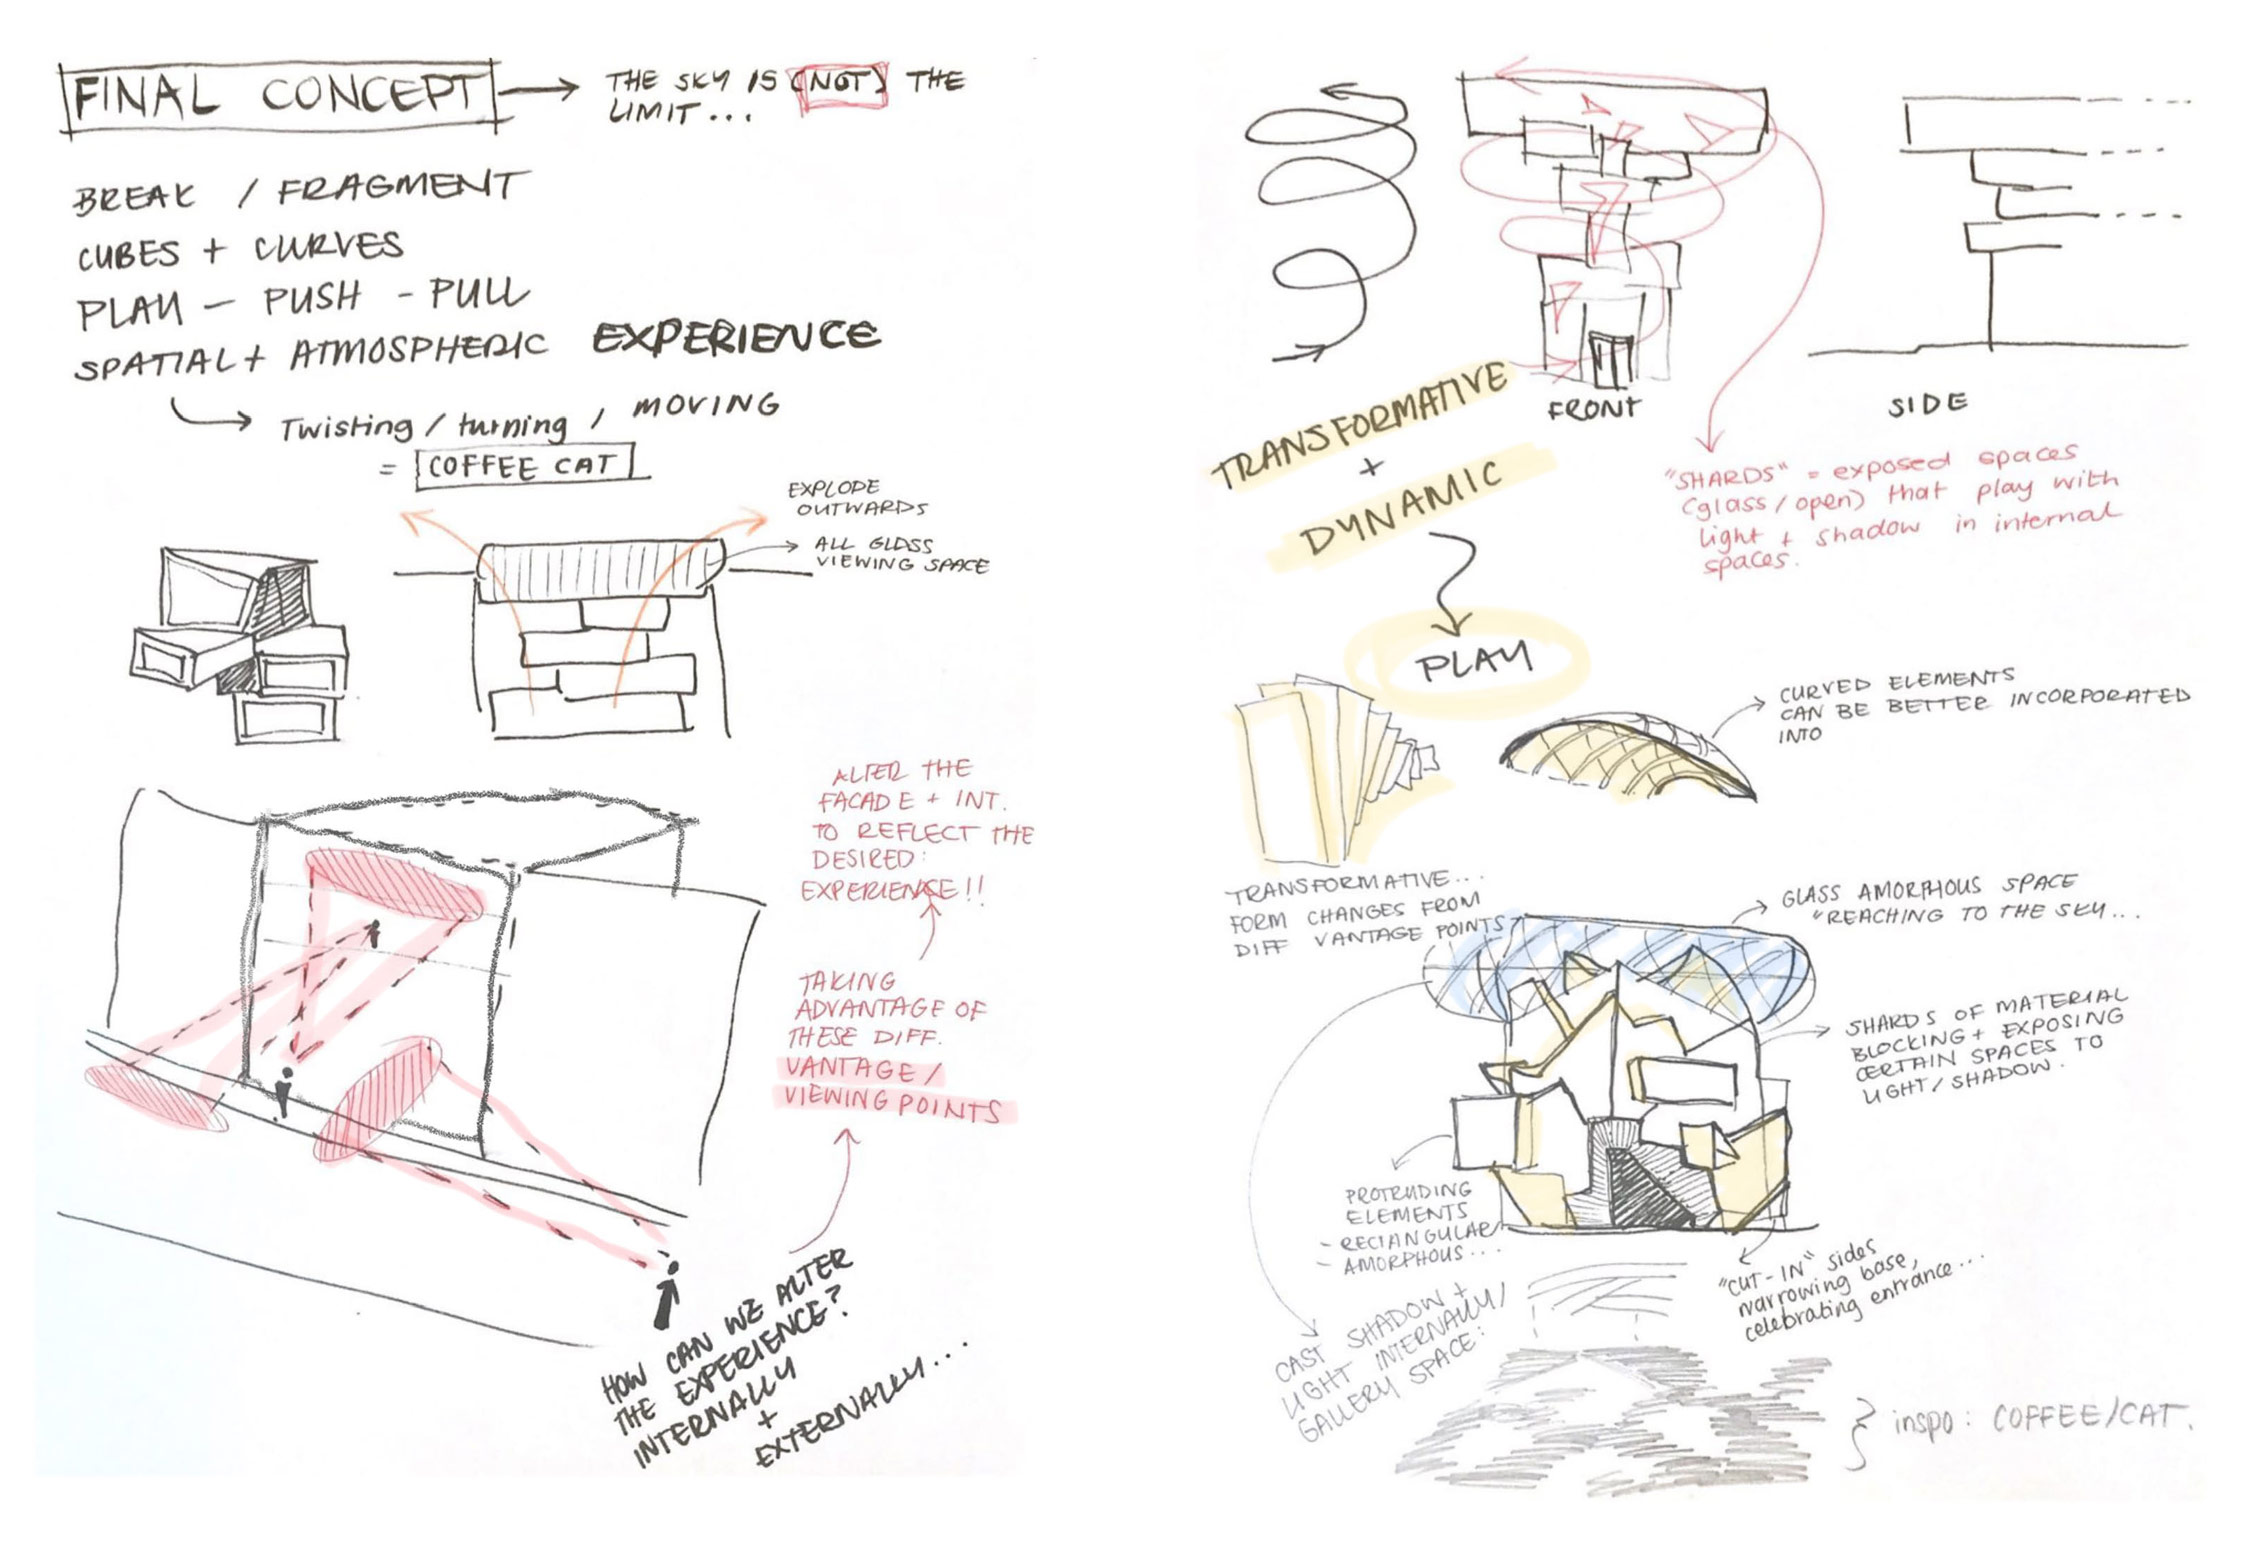 FINAL CONCEPT
THE SKY IS (NOT) THE
LIMIT...
BREAK / FRAGMENT
CUBES + CURVES
PLAY - PUSH - PULL
SPATIAL + ATMOSPHERIC EXPERIENCE
Twisting / turning / MOVING
= COFFEE CAT
EXPLODE
OUTWARDS
ALL GLASS
VIEWING SPACE
ALTER THE
FACADE + INT.
TO REFLECT THE
DESIRED:
EXPERIENCE!!
TAKING
ADVANTAGE OF
THESE DIFF.
VANTAGE /
VIEWING POINTS
HOW CAN WE ALTER
THE EXPERIENCE?
INTERNALLY
+
EXTERNALLY...
FRONT
SIDE
TRANSFORMATIVE
+
DYNAMIC
"SHARDS" = exposed spaces
(glass/open) that play with
light + shadow in internal
spaces.
PLAY
CURVED ELEMENTS
CAN BE BETTER INCORPORATED
INTO
TRANSFORMATIVE...
FORM CHANGES FROM
DIFF VANTAGE POINTS
GLASS AMORPHOUS SPACE
"REACHING TO THE SKY...
SHARDS OF MATERIAL
BLOCKING + EXPOSING
CERTAIN SPACES TO
LIGHT/SHADOW.
PROTRUDING
ELEMENTS
- RECTANGULAR
- AMORPHOUS...
"CUT-IN" sides
narrowing base,
celebrating entrance...
CAST SHADOW +
LIGHT INTERNALLY/
GALLERY SPACE:
inspo: COFFEE/CAT.